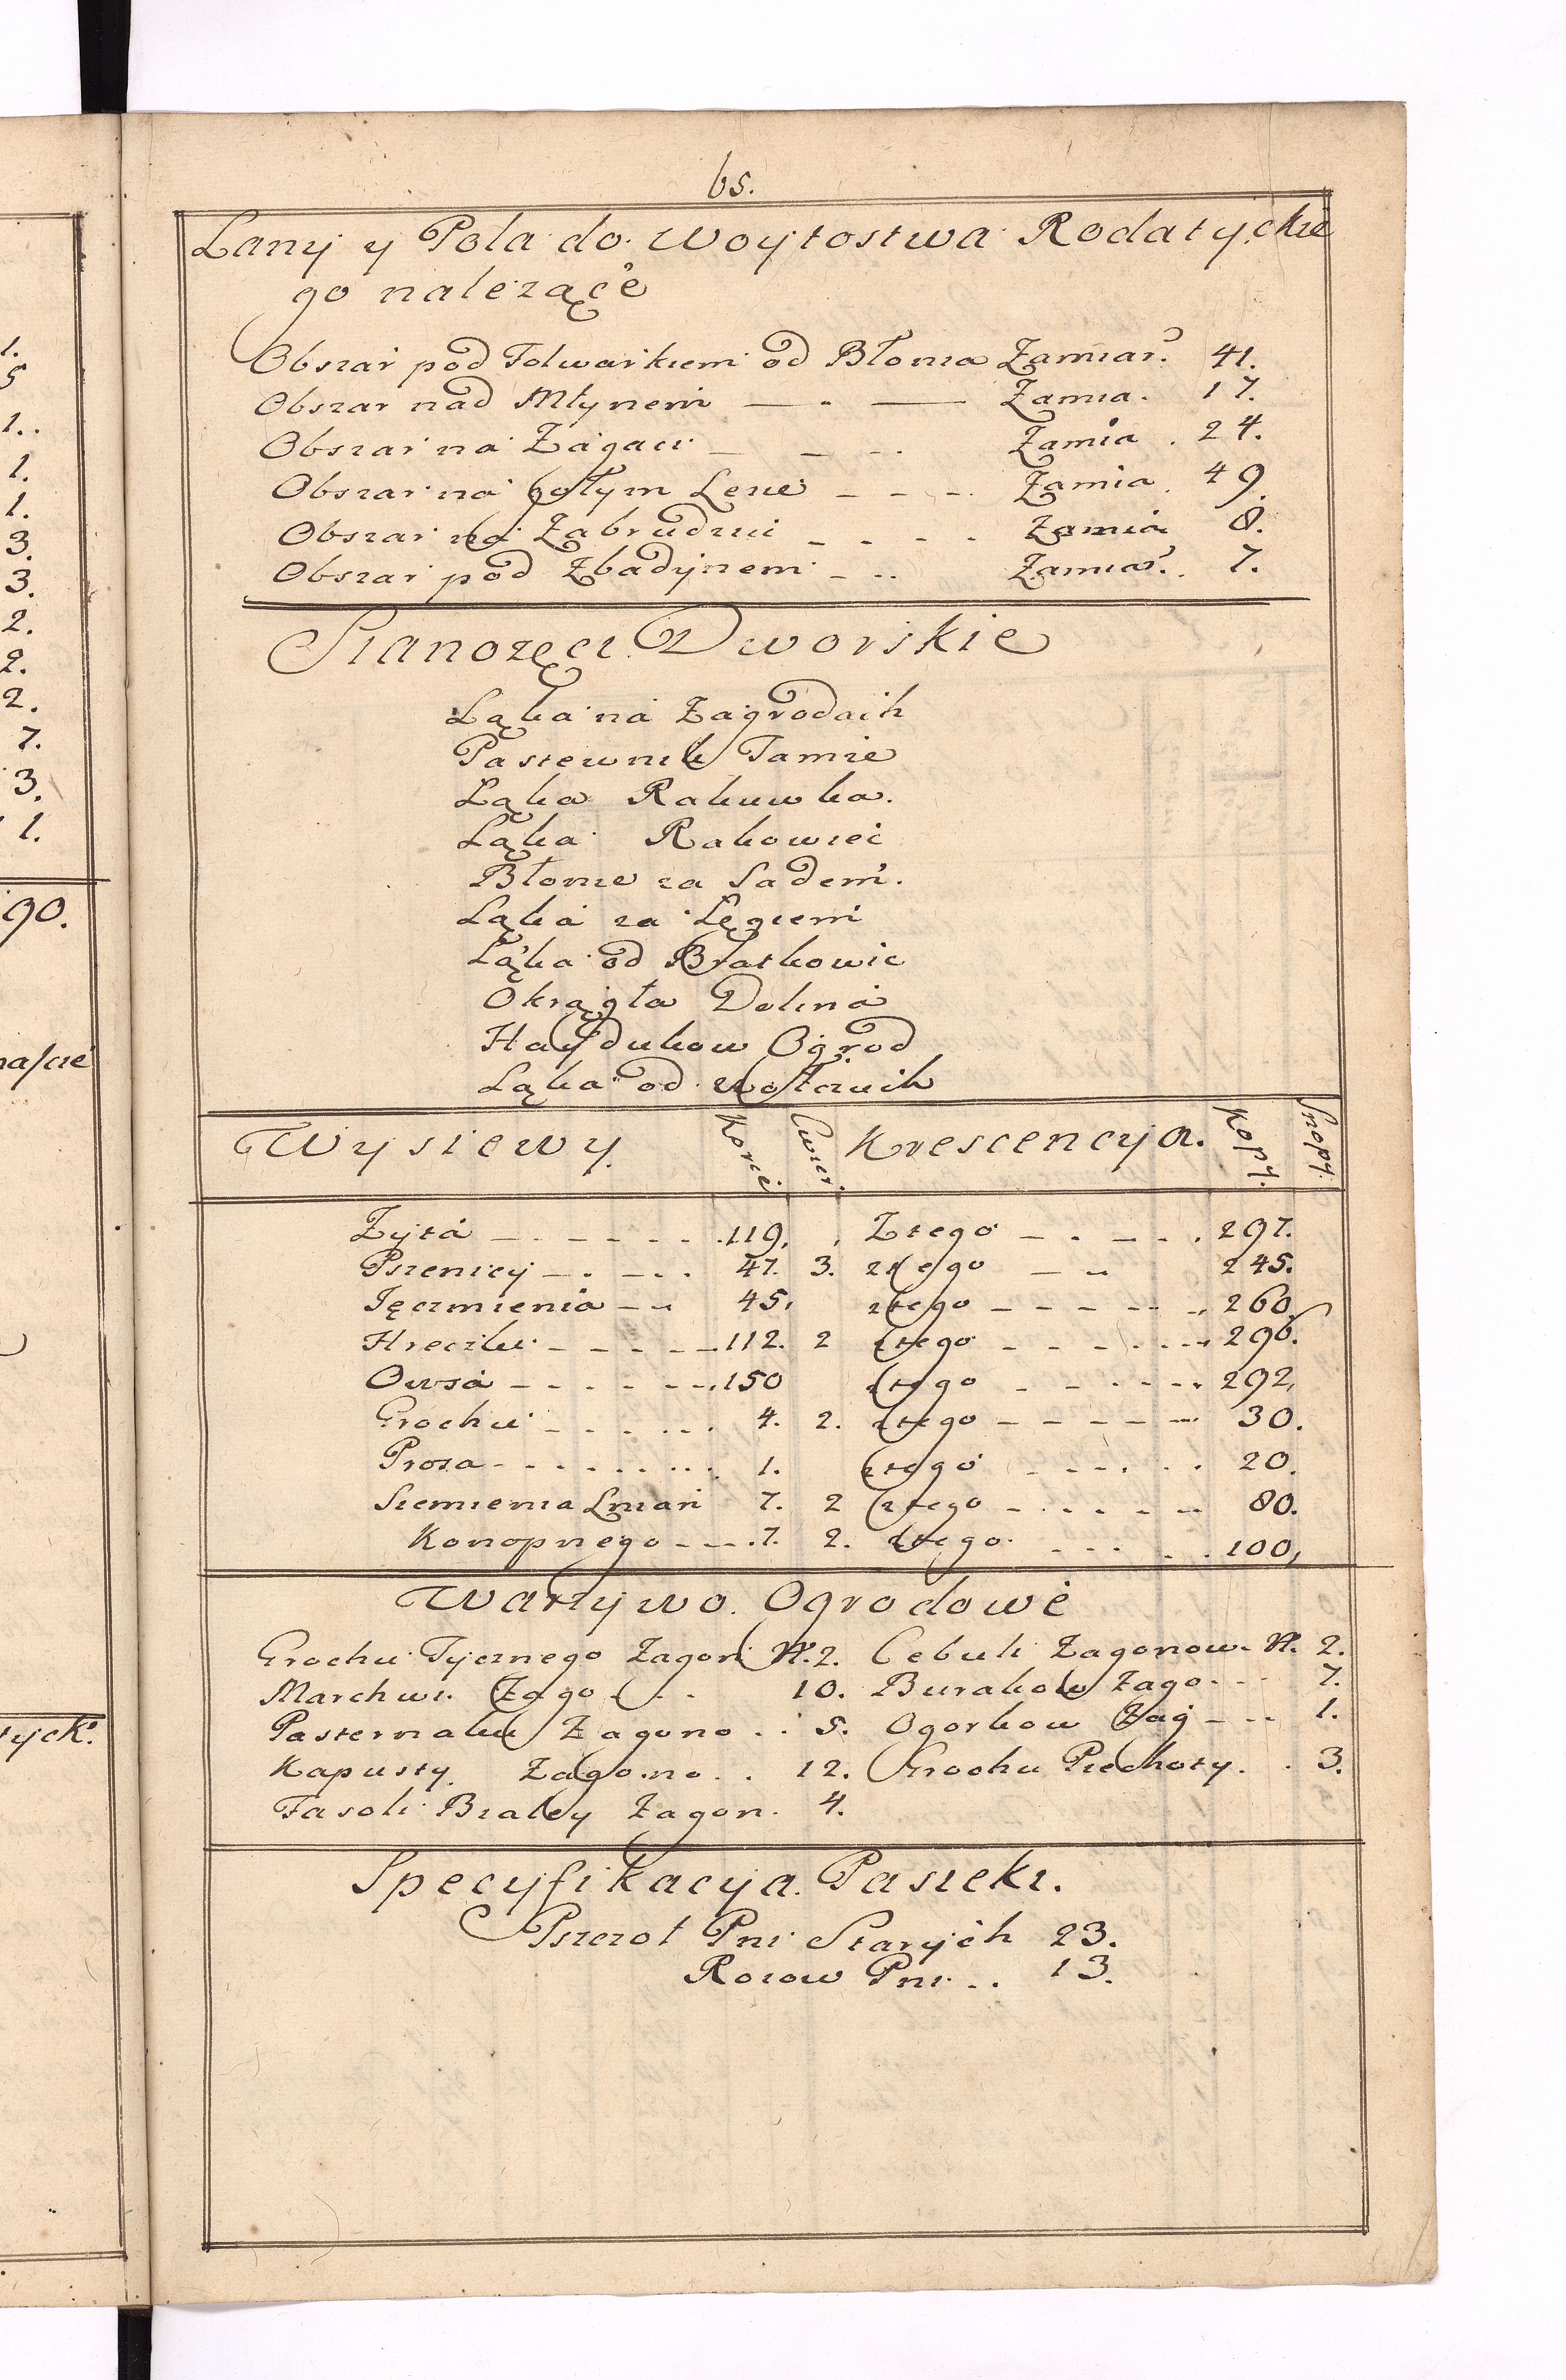 65.
Lany y Pola do Woytostwa Rodatyckie
go nalezące
Obszar pod Folwarkiem od Błonia Zamiar. 41.
Obszar nad Młynem Zamia. 17.
Obszar na Zagaci Zamia. 24.
Obszar na połym Lezie Zamia. 49.
Obszar na Zabrudzui Zamia 8.
Obszar pod Zbadynem Zamiar. 7.
Sianozęci Dworskie
Ląka na Zagrodach
Pastewnik Tamze
Ląka Rakuwka.
Ląka Rakowiec
Błonie za Sadem.
Ląka za Lęgiem
Ląka od Bratkowic
Okrągła Dolina
Haydukow Ogrod
Ląka od Wołczuch
Wysiewy. Korcé Cwier. Krescencya. Kopy. Snopy.
Zyta 119. Z tego 297.
Pszenicy 47. 3. z tego 245.
Jęczmienia 45. z tego 260.
Hreczki 112. 2 z tego 296.
Owsa 150 z tego 292.
Grochu 4. 2. z tego 30.
Prosa 1. z tego 20.
Siemienia Lnian 7. 2 z tego 80.
Konopnego 7. 2. z tego 100.
Warzywo Ogrodowe
Grochu Tycznego Zagon N. 2. Cebuli Zagonow N. 2.
Marchwi Zago 10. Burakow Zago. 7.
Pasternaku Zagono 5. Ogorkow Zag 1.
Kapusty Zagono. 12. Grochu Piechoty. 3.
Fasoli Białey Zagon. 4.
Specyfikacya Pasieki.
Pszczoł Pni Starych 23.
Roiow Pni 13.
1.
5
1.
1.
1.
3.
3.
2.
2.
2.
7.
3.
1.
90.
tyck.